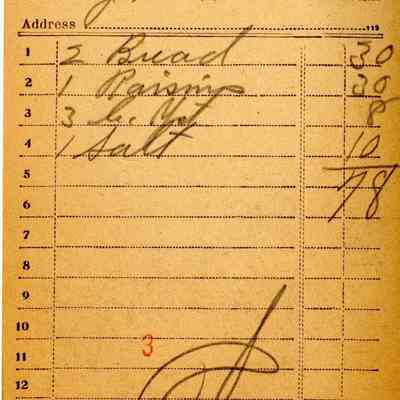 Address
1 2 Bread 30
2 1 Raisins 30
3 3 C. Yst 8
4 1 Salt 10
5
6 78
7
8
9
10
3
11
12